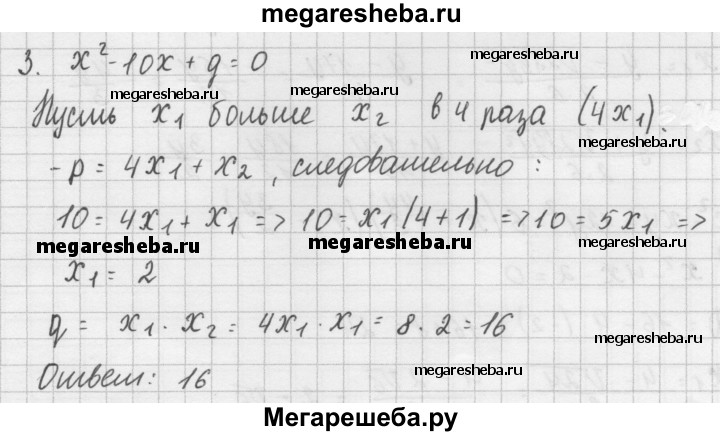 megaresheba.ru
3. x² - 10x + q = 0
megaresheba.ru
megaresheba.ru
Пусть x₁ больше x₂ в 4 раза (4x₁).
megaresheba.ru
megaresheba.ru
-p = 4x₁ + x₂, следовательно:
10 = 4x₁ + x₁ => 10 = x₁(4+1) => 10 = 5x₁ =>
megaresheba.ru
megaresheba.ru
megaresheba.ru
x₁ = 2
q = x₁ · x₂ = 4x₁ · x₁ = 8 · 2 = 16
megaresheba.ru
megaresheba.ru
Ответ: 16
megaresheba.ru
Мегарешеба.ру